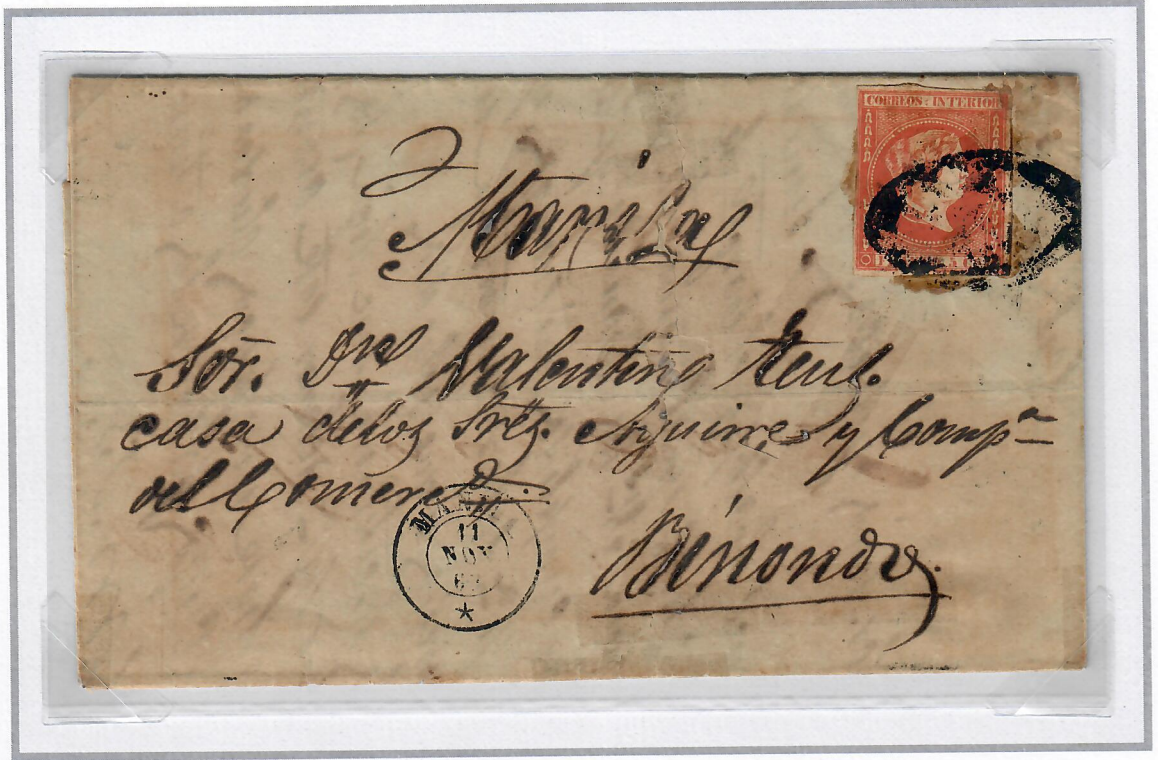 CORREOS: INTERIOR
Manila
Sōr. Dn Valentino Teus.
casa delos Sres. Aguirre y Compª
del Comercio.
MANILA
11
NOV
Binondo.